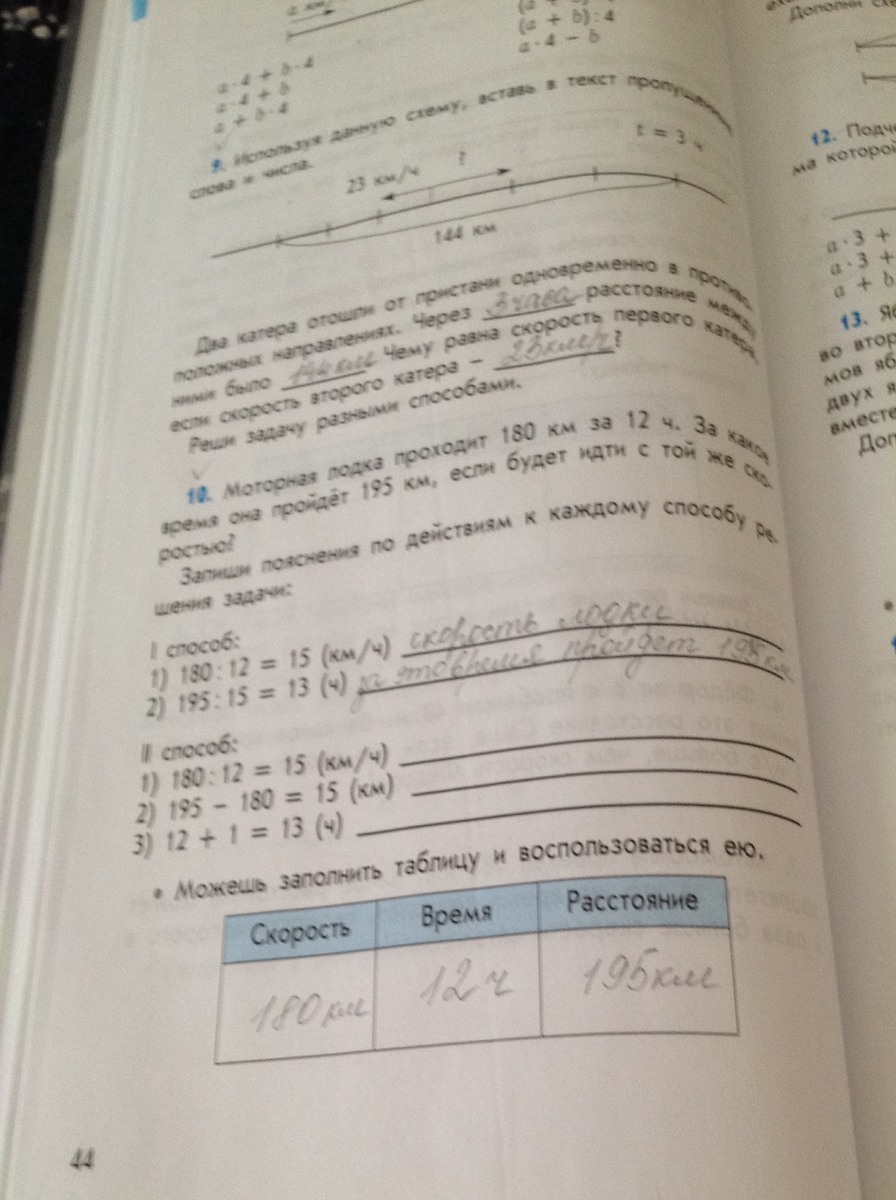 а км
(а + b) : 4
а · 4 − b
а · 4 + b · 4
а · 4 + b
а + b · 4
9. Используя данную схему, вставь в текст пропущенные
слова и числа.
t = 3 ч
23 км/ч ?
144 км
Два катера отошли от пристани одновременно в противо-
положных направлениях. Через 3 часа расстояние между
ними было 144 км Чему равна скорость первого катера,
если скорость второго катера – 23 км/ч ?
Реши задачу разными способами.
10. Моторная лодка проходит 180 км за 12 ч. За какое
время она пройдёт 195 км, если будет идти с той же ско-
ростью?
Запиши пояснения по действиям к каждому способу ре-
шения задачи:
I способ:
1) 180 : 12 = 15 (км/ч) скорость лодки
2) 195 : 15 = 13 (ч) за это время пройдет 195 км
II способ:
1) 180 : 12 = 15 (км/ч)
2) 195 – 180 = 15 (км)
3) 12 + 1 = 13 (ч)
• Можешь заполнить таблицу и воспользоваться ею.
Скорость Время Расстояние
180 км 12 ч 195 км
44
Дополни
12. Подч
ма которой
а · 3 +
а · 3 +
а + b
13. Яб
во втор
мов яб
двух я
вместе
Доп